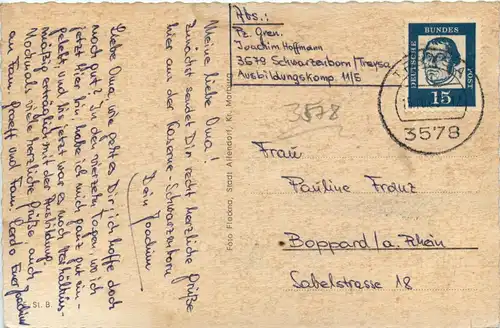 Abs.:
Pz. Gren.
Joachim Hoffmann
3579 Schwarzenborn/Treysa
Ausbildungskomp. 11/5
DEUTSCHE BUNDES POST
15
3578
3578
Frau
Pauline Franz
Boppard/a. Rhein
Sabelstrasse 18
Meine liebe Oma!
Zunächst sendet Dir recht herzliche Grüße
hier aus der Kaserne-Schwarzenborn
Dein Joachim
Liebe Oma, wie geht es Dir, ich hoffe doch
noch gut? In den vierzehn Tagen wo ich
jetzt hier bin, habe ich mich ganz gut ein-
gelebt und bis jetzt war es noch verhältnis-
mäßig erträglich mit der Ausbildung.
Nochmals viele herzliche Grüße auch
an Fam. und Fam. Euer Joachim
Foto Fladna, Stadt Allendorf, Kr. Marburg
St. B.